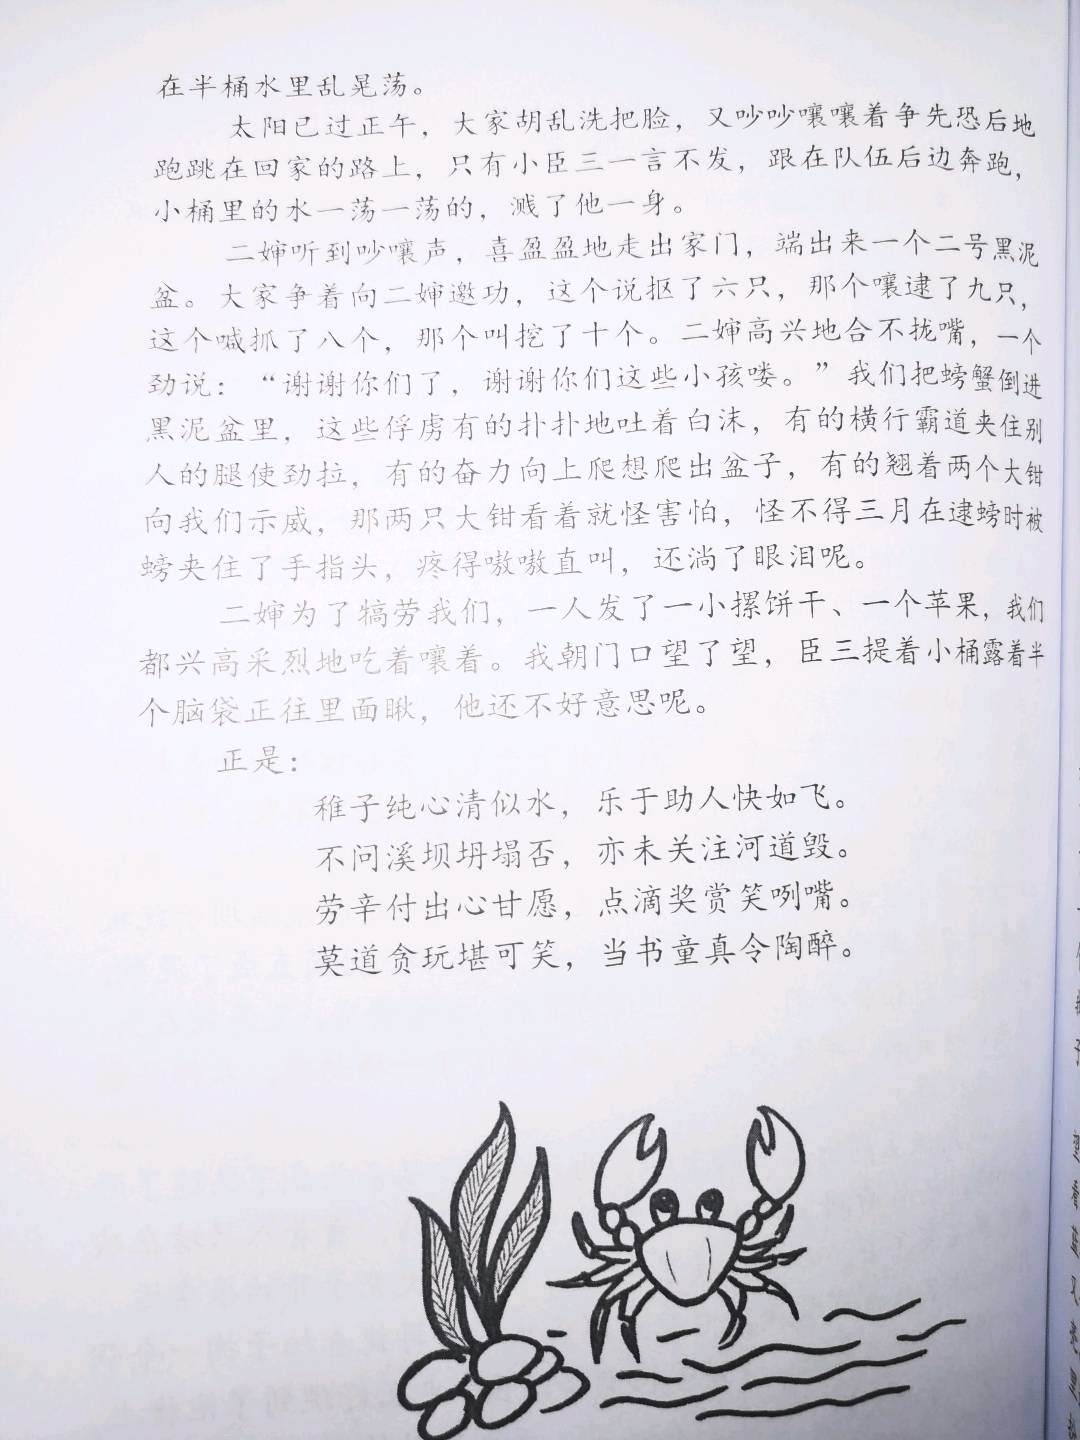 在半桶水里乱晃荡。
太阳已过正午，大家胡乱洗把脸，又吵吵嚷嚷着争先恐后地
跑跳在回家的路上，只有小臣三一言不发，跟在队伍后边奔跑，
小桶里的水一荡一荡的，溅了他一身。
二婶听到吵嚷声，喜盈盈地走出家门，端出来一个二号黑泥
盆。大家争着向二婶邀功，这个说抠了六只，那个嚷逮了九只，
这个喊抓了八个，那个叫挖了十个。二婶高兴地合不拢嘴，一个
劲说：“谢谢你们了，谢谢你们这些小孩喽。”我们把螃蟹倒进
黑泥盆里，这些俘虏有的扑扑地吐着白沫，有的横行霸道夹住别
人的腿使劲拉，有的奋力向上爬想爬出盆子，有的翘着两个大钳
向我们示威，那两只大钳看着就怪害怕，怪不得三月在逮螃时被
螃夹住了手指头，疼得嗷嗷直叫，还淌了眼泪呢。
二婶为了犒劳我们，一人发了一小摞饼干、一个苹果，我们
都兴高采烈地吃着嚷着。我朝门口望了望，臣三提着小桶露着半
个脑袋正往里面瞅，他还不好意思呢。
正是：
稚子纯心清似水，乐于助人快如飞。
不问溪坝坍塌否，亦未关注河道毁。
劳辛付出心甘愿，点滴奖赏笑咧嘴。
莫道贪玩堪可笑，当书童真令陶醉。